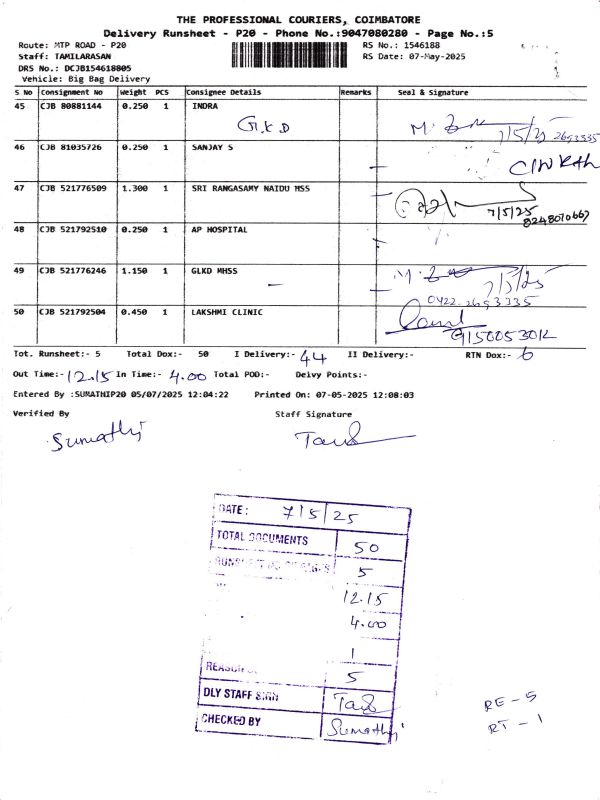 THE PROFESSIONAL COURIERS, COIMBATORE
Delivery Runsheet - P20 - Phone No.:9047080280 - Page No.:5
Route: MTP ROAD - P20 RS No.: 1546188
Staff: TAMILARASAN RS Date: 07-May-2025
DRS No.: DCJB154618805
Vehicle: Big Bag Delivery
S No Consignment No Weight PCS Consignee Details Remarks Seal & Signature
45 CJB 80881144 0.250 1 INDRA
G.K.D 7/5/25 2693335
46 CJB 81035726 0.250 1 SANJAY S
47 CJB 521776509 1.300 1 SRI RANGASAMY NAIDU HSS
7/5/25
8248070667
48 CJB 521792510 0.250 1 AP HOSPITAL
49 CJB 521776246 1.150 1 GLKD MHSS
7/5/25
0422.2693335
50 CJB 521792504 0.450 1 LAKSHMI CLINIC
Tot. Runsheet:- 5 Total Dox:- 50 I Delivery:- 44 II Delivery:- RTN Dox:- 6
Out Time:- 12.15 In Time:- 4.00 Total POD:- Delvy Points:-
Entered By :SUMATHIP20 05/07/2025 12:04:22 Printed On: 07-05-2025 12:08:03
Verified By Staff Signature
Sumathi
DATE : 7/5/25
TOTAL DOCUMENTS 50
5
12.15
4.00
1
5
DLY STAFF SIGN
CHECKED BY Sumathi
RE - 5
RT - 1